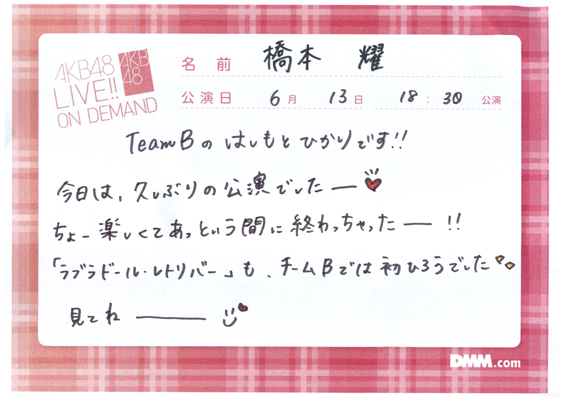 AKB48
LIVE!!
ON DEMAND
AKB
48
名前 橋本 耀
公演日 6月 13日 18:30 公演
TeamBの はしもとひかりです!!
今日は、久しぶりの公演でしたー
ちょー楽しくてあっという間に終わっちゃったー !!
「ラブラドール・レトリバー」も、チームBでは初ひろうでした
見てねー
DMM.com